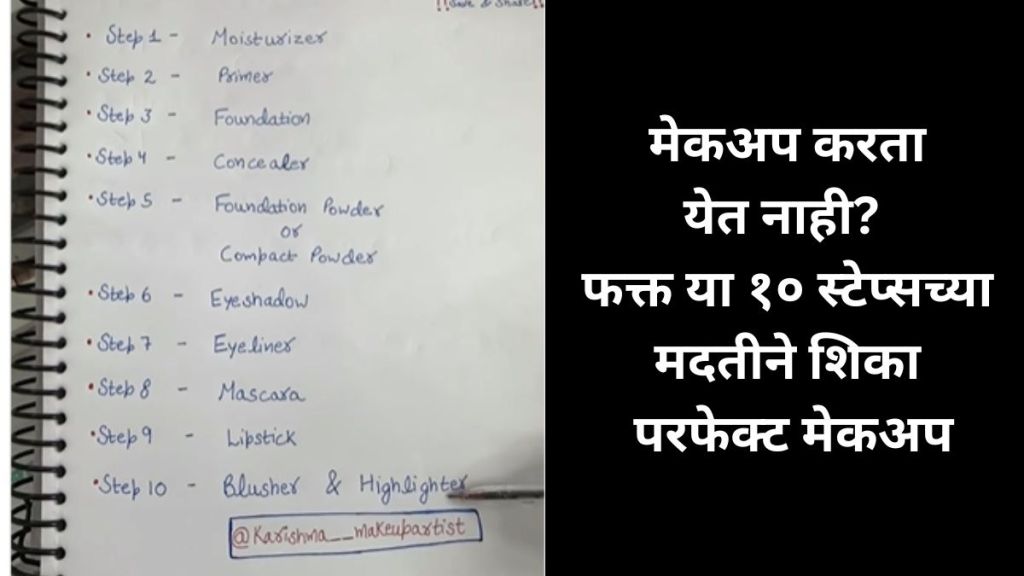 !!Save & Share!!
• Step 1 - Moisturizer
• Step 2 - Primer
• Step 3 - Foundation
• Step 4 - Concealer
• Step 5 - Foundation Powder
or
Compact Powder
• Step 6 - Eyeshadow
• Step 7 - Eyeliner
• Step 8 - Mascara
• Step 9 - Lipstick
• Step 10 - Blusher & Highlighter
@Karishma__makeupartist
मेकअप करता
येत नाही?
फक्त या १० स्टेप्सच्या
मदतीने शिका
परफेक्ट मेकअप